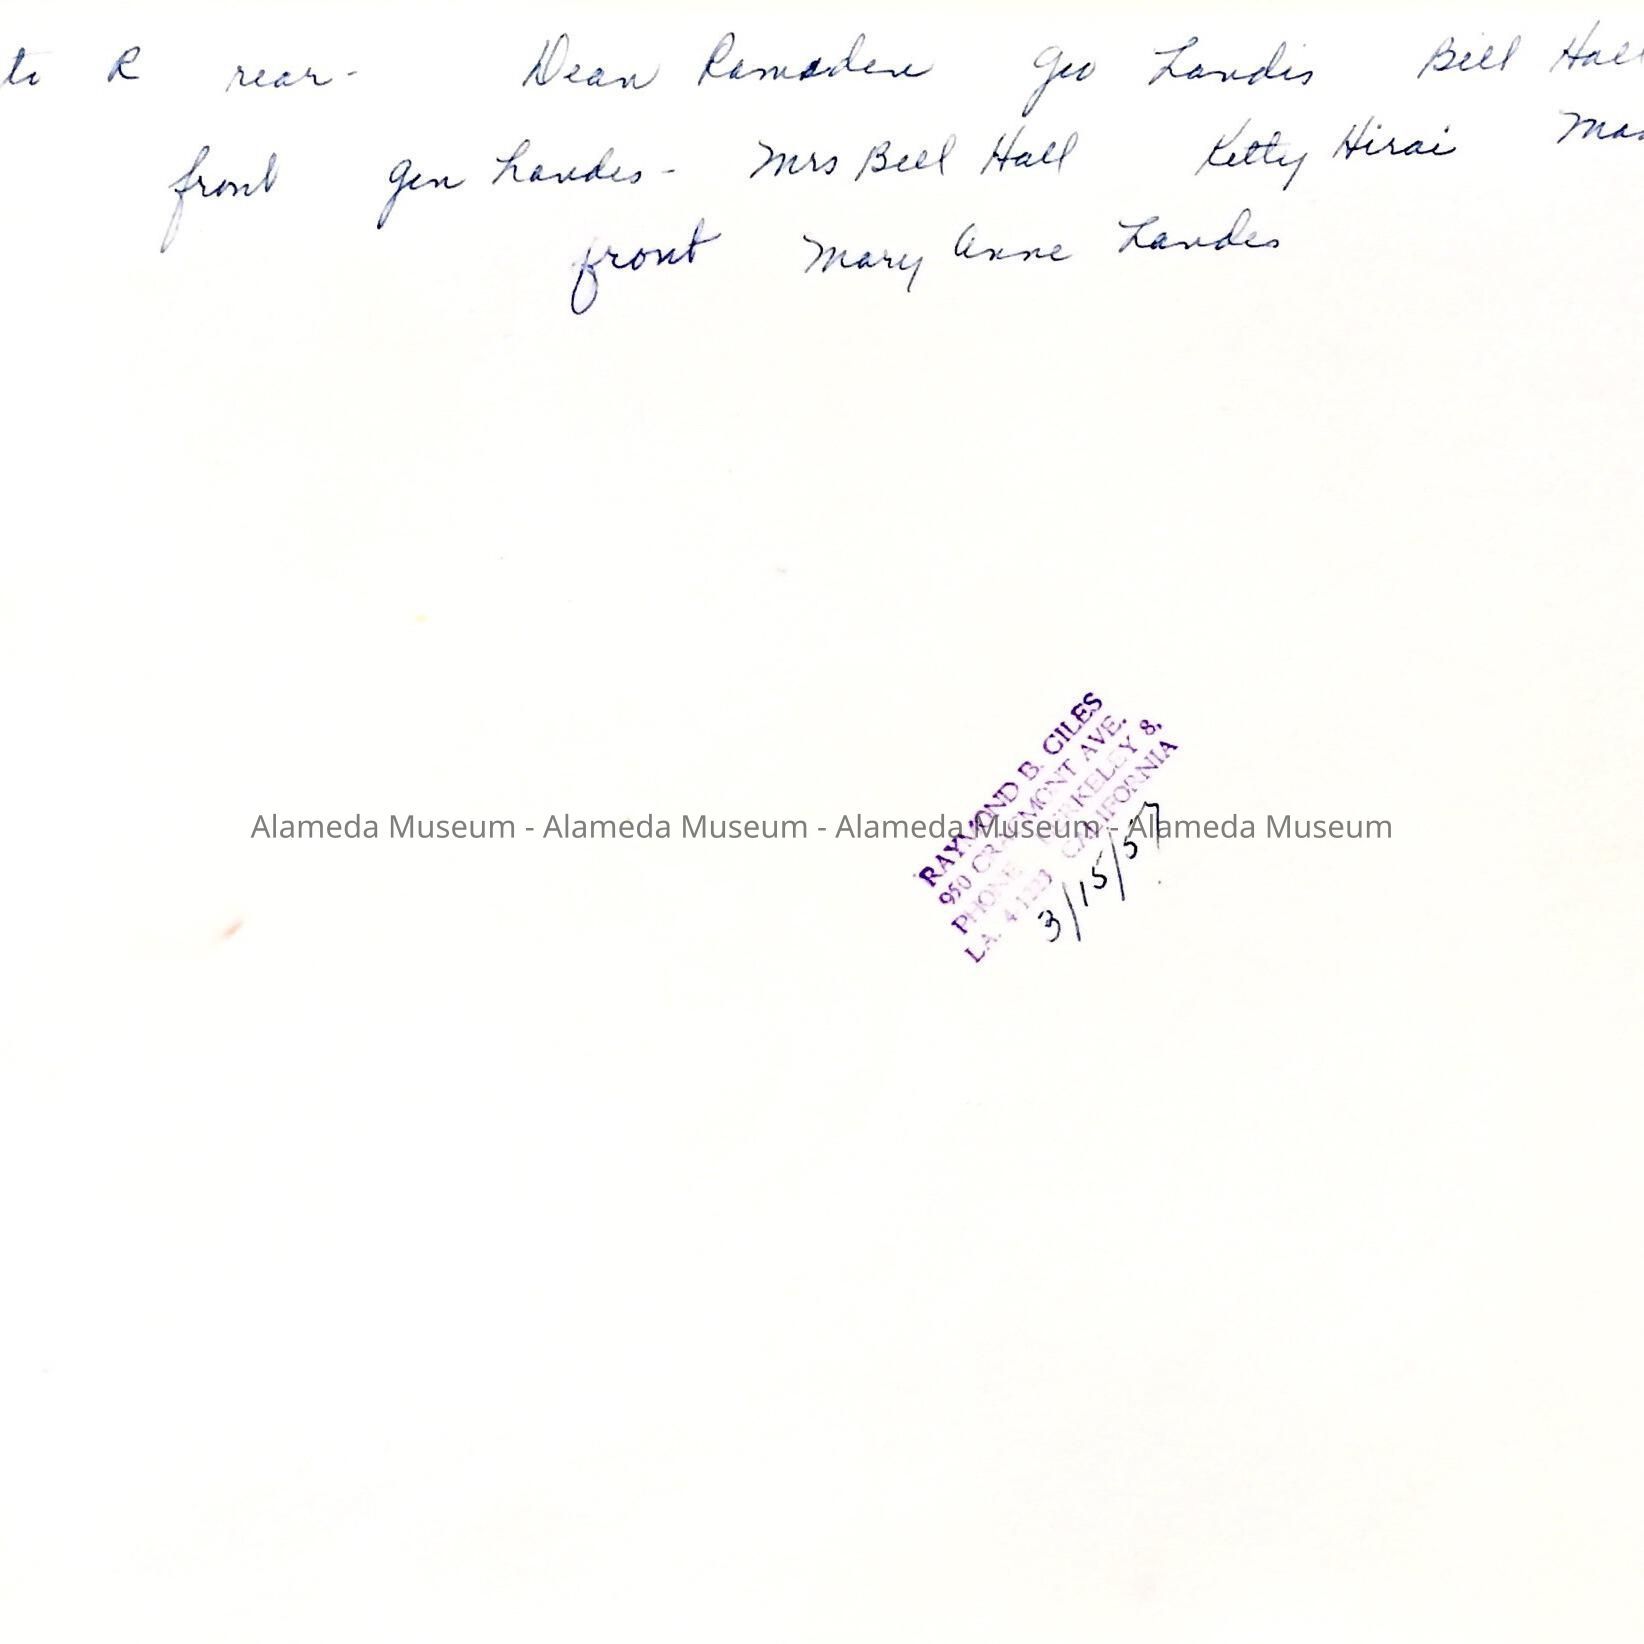 to R rear- Dean Ramsden Geo Landis Bill Hall
front Gen Landes- Mrs Bill Hall Kitty Hirai Mas
front Mary Anne Landes
RAYMOND B. GILES
950 CRAGMONT AVE.
PHONE BERKELEY 8,
LA. 4 1223 CALIFORNIA
3/15/57
Alameda Museum - Alameda Museum - Alameda Museum - Alameda Museum